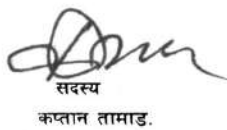 सदस्य
कप्तान तामाड.